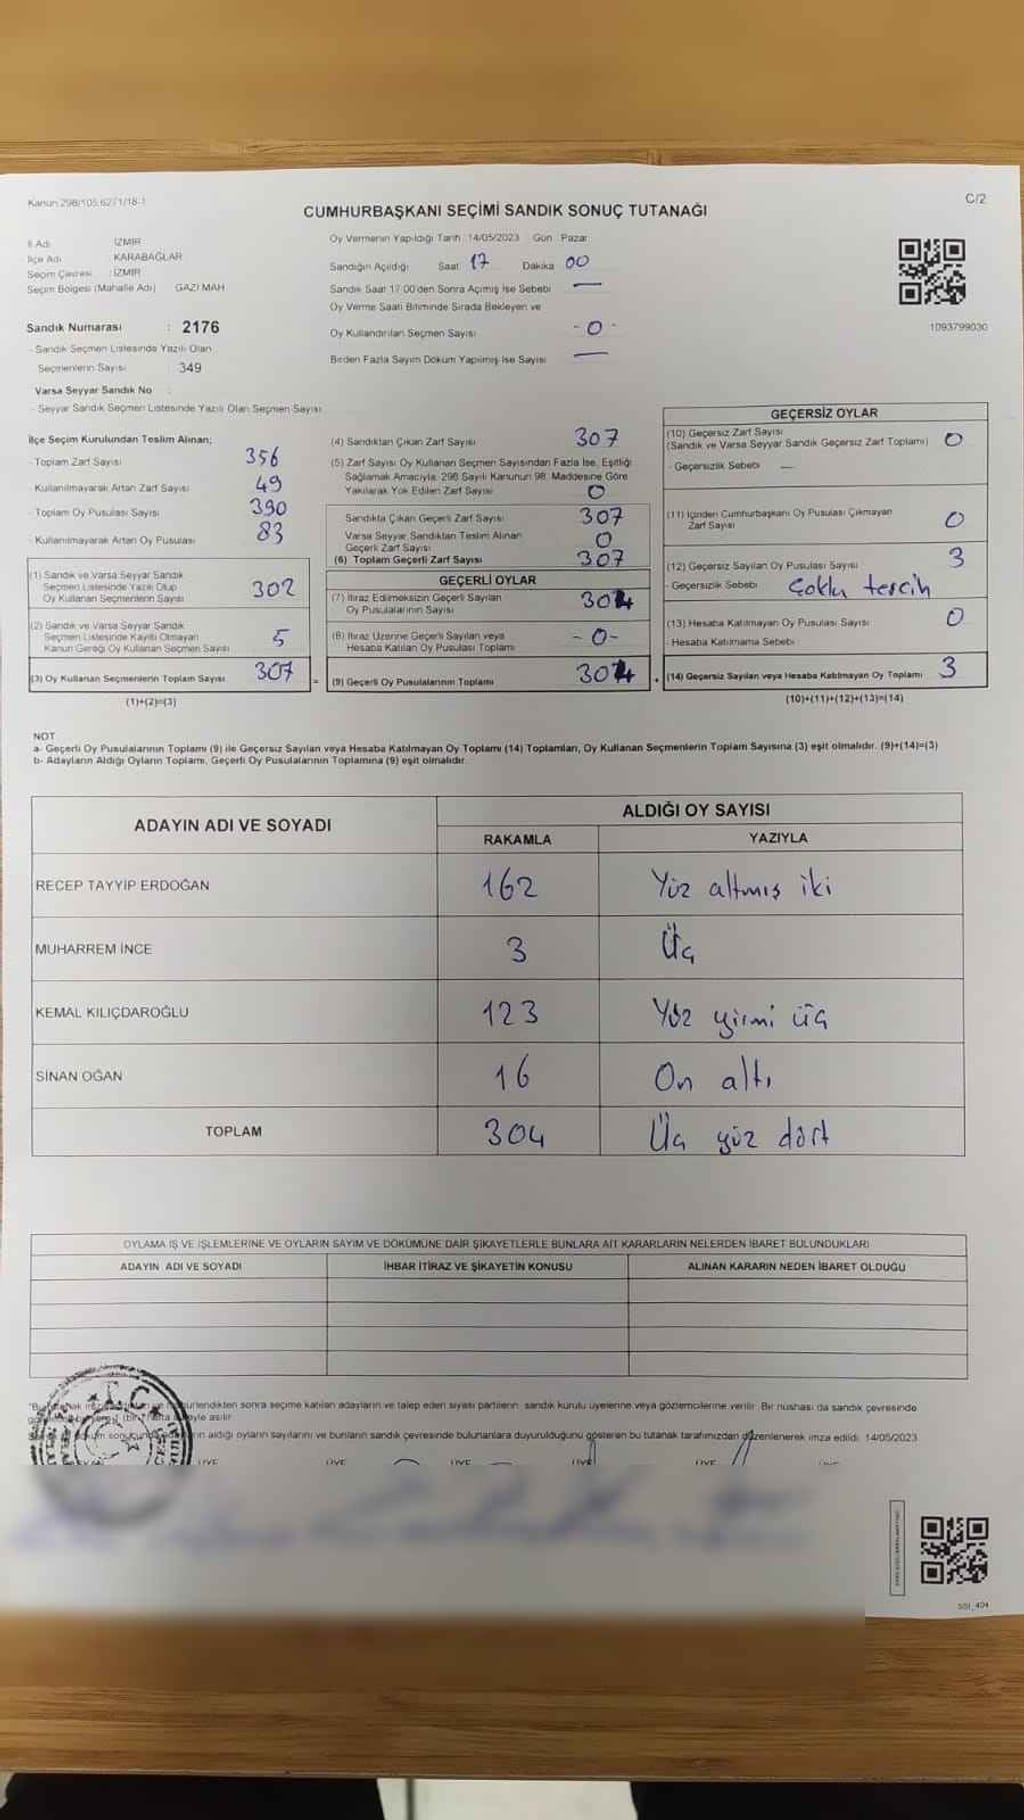 Kanun 298/105,6271/18-1
C/2
CUMHURBAŞKANI SEÇİMİ SANDIK SONUÇ TUTANAĞI
İl Adı İZMİR
İlçe Adı KARABAĞLAR
Seçim Çevresi : İZMİR
Seçim Bölgesi (Mahalle Adı) GAZİ MAH
Sandık Numarası : 2176
- Sandık Seçmen Listesinde Yazılı Olan
Seçmenlerin Sayısı : 349
Varsa Seyyar Sandık No :
- Seyyar Sandık Seçmen Listesinde Yazılı Olan Seçmen Sayısı
Oy Vermenin Yapıldığı Tarih : 14/05/2023 Gün : Pazar
Sandığın Açıldığı Saat 17 Dakika 00
Sandık Saat 17:00'den Sonra Açılmış İse Sebebi —
Oy Verme Saati Bitiminde Sırada Bekleyen ve
Oy Kullandırılan Seçmen Sayısı - 0 -
Birden Fazla Sayım Döküm Yapılmış İse Sayısı —
1093799030
İlçe Seçim Kurulundan Teslim Alınan;
- Toplam Zarf Sayısı 356
- Kullanılmayarak Artan Zarf Sayısı 49
- Toplam Oy Pusulası Sayısı 390
- Kullanılmayarak Artan Oy Pusulası 83
(1) Sandık ve Varsa Seyyar Sandık
Seçmen Listesinde Yazılı Olup
Oy Kullanan Seçmenlerin Sayısı 302
(2) Sandık ve Varsa Seyyar Sandık
Seçmen Listesinde Kayıtlı Olmayan
Kanun Gereği Oy Kullanan Seçmen Sayısı 5
(3) Oy Kullanan Seçmenlerin Toplam Sayısı 307
(1)+(2)=(3)
(4) Sandıktan Çıkan Zarf Sayısı 307
(5) Zarf Sayısı Oy Kullanan Seçmen Sayısından Fazla İse, Eşitliği
Sağlamak Amacıyla, 298 Sayılı Kanunun 98. Maddesine Göre
Yakılarak Yok Edilen Zarf Sayısı 0
Sandıkta Çıkan Geçerli Zarf Sayısı 307
Varsa Seyyar Sandıktan Teslim Alınan
Geçerli Zarf Sayısı 0
(6) Toplam Geçerli Zarf Sayısı 307
GEÇERLİ OYLAR
(7) İtiraz Edilmeksizin Geçerli Sayılan
Oy Pusulalarının Sayısı 304
(8) İtiraz Üzerine Geçerli Sayılan veya
Hesaba Katılan Oy Pusulası Toplamı - 0 -
= (9) Geçerli Oy Pusulalarının Toplamı 304
GEÇERSİZ OYLAR
(10) Geçersiz Zarf Sayısı
(Sandık ve Varsa Seyyar Sandık Geçersiz Zarf Toplamı) 0
- Geçersizlik Sebebi —
(11) İçinden Cumhurbaşkanı Oy Pusulası Çıkmayan
Zarf Sayısı 0
(12) Geçersiz Sayılan Oy Pusulası Sayısı 3
- Geçersizlik Sebebi Çoklu tercih
(13) Hesaba Katılmayan Oy Pusulası Sayısı 0
- Hesaba Katılmama Sebebi
+ (14) Geçersiz Sayılan veya Hesaba Katılmayan Oy Toplamı 3
(10)+(11)+(12)+(13)=(14)
NOT
a- Geçerli Oy Pusulalarının Toplamı (9) ile Geçersiz Sayılan veya Hesaba Katılmayan Oy Toplamı (14) Toplamları, Oy Kullanan Seçmenlerin Toplam Sayısına (3) eşit olmalıdır. (9)+(14)=(3)
b- Adayların Aldığı Oyların Toplamı, Geçerli Oy Pusulalarının Toplamına (9) eşit olmalıdır.
ADAYIN ADI VE SOYADI ALDIĞI OY SAYISI
RAKAMLA YAZIYLA
RECEP TAYYİP ERDOĞAN 162 Yüz altmış iki
MUHARREM İNCE 3 Üç
KEMAL KILIÇDAROĞLU 123 Yüz yirmi üç
SİNAN OĞAN 16 On altı
TOPLAM 304 Üç yüz dört
OYLAMA İŞ VE İŞLEMLERİNE VE OYLARIN SAYIM VE DÖKÜMÜNE DAİR ŞİKAYETLERLE BUNLARA AİT KARARLARIN NELERDEN İBARET BULUNDUKLARI
ADAYIN ADI VE SOYADI İHBAR İTİRAZ VE ŞİKAYETİN KONUSU ALINAN KARARIN NEDEN İBARET OLDUĞU
T.C.
sonra seçime katılan adayların ve talep eden siyasi partilerin, sandık kurulu üyelerine veya gözlemcilerine verilir. Bir nüshası da sandık çevresinde
asılır.
aldığı oyların sayılarını ve bunların sandık çevresinde bulunanlara duyurulduğunu gösteren bu tutanak tarafımızdan düzenlenerek imza edildi. 14/05/2023
ÜYE ÜYE ÜYE ÜYE ÜYE